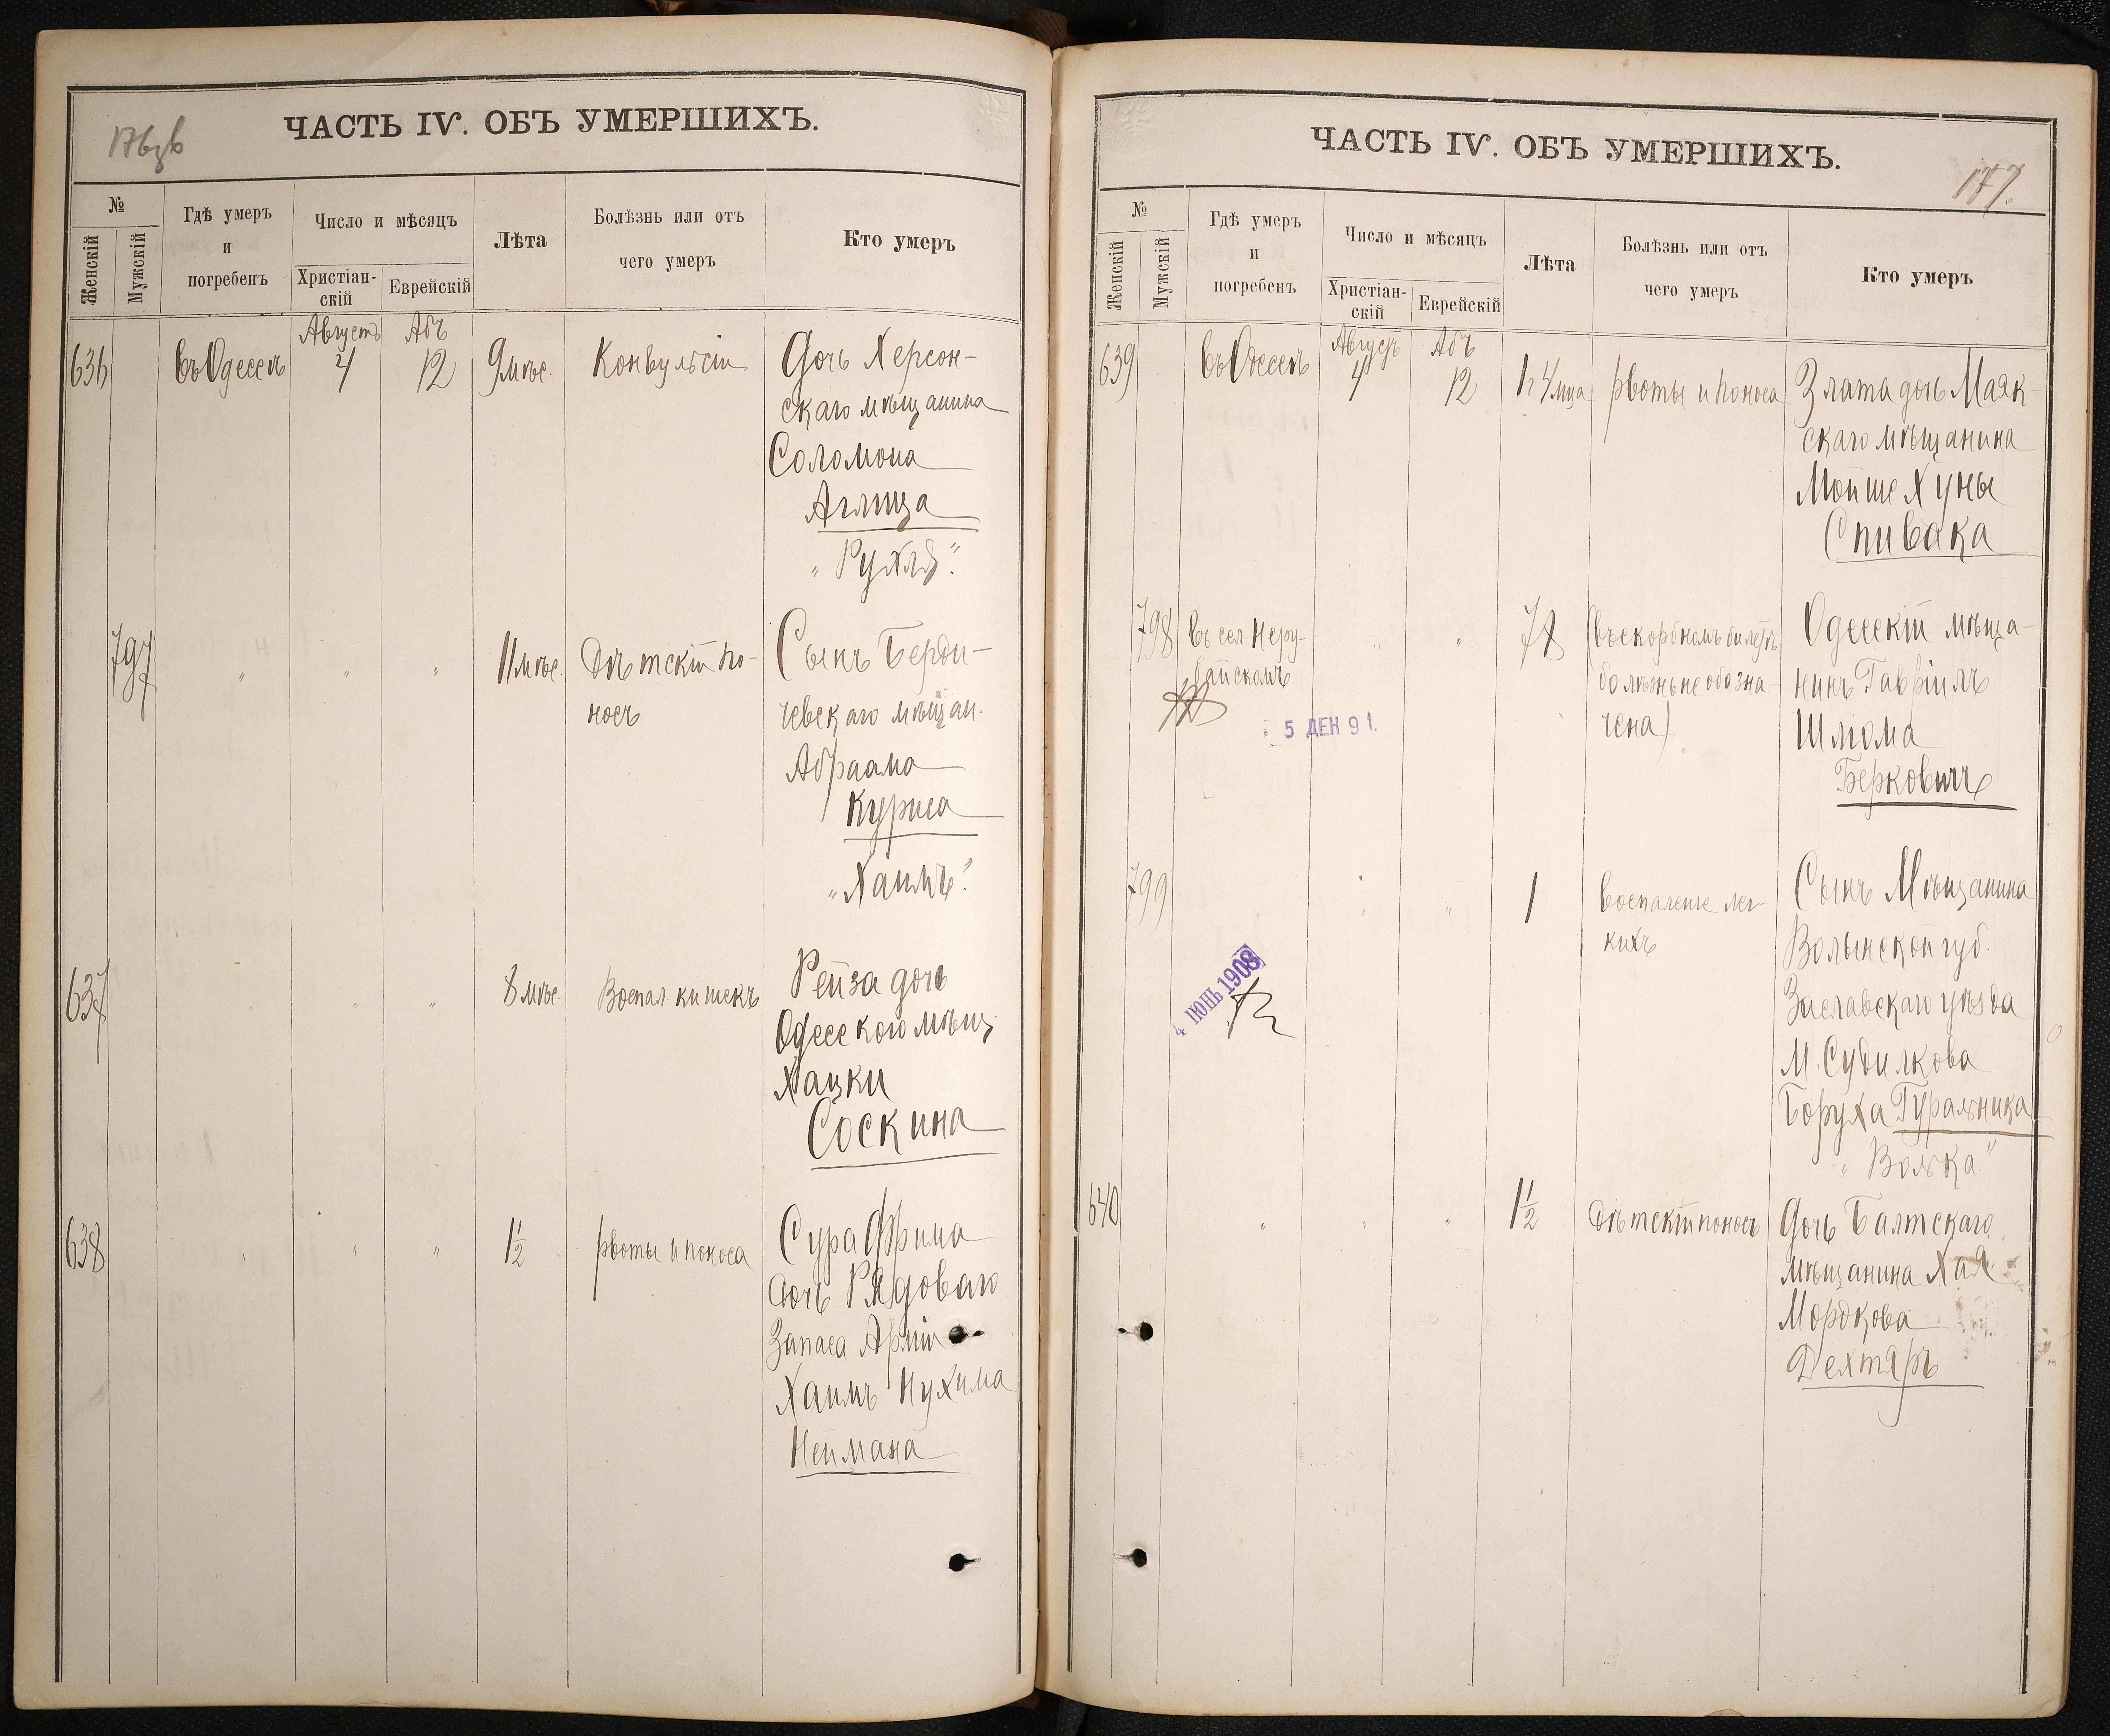 ЧАСТЬ IV. ОБЪ УМЕРШИХЪ.
№
Женскій
Мужскій
Гдѣ умеръ
и
погребенъ
Число и мѣсяцъ
Христіан-
скій
Еврейскій
Лѣта
Болѣзнь или отъ
чего умеръ
Кто умеръ
636
въ Одессѣ
Августъ
4
Абъ
12
9 мѣс.
Конвульсіи
Дочь Херсон-
скаго мѣщанина
Соломона
Аглица
„Рухля".
797
"
"
"
11 мѣс.
Дѣтскій по-
носъ
Сынъ Берди-
чевскаго мѣщан.
Абраама
Куриса
„Хаимъ".
637
"
"
"
8 мѣс.
Воспал. кишекъ
Рейза дочь
Одесскаго мѣщ.
Хацки
Соскина
638
"
"
"
1½
рвоты и поноса
Сура Фрима
дочь Рядоваго
Запаса Арміи
Хаимъ Нухима
Неймана
ЧАСТЬ IV. ОБЪ УМЕРШИХЪ.
177.
№
Женскій
Мужскій
Гдѣ умеръ
и
погребенъ
Число и мѣсяцъ
Христіан-
скій
Еврейскій
Лѣта
Болѣзнь или отъ
чего умеръ
Кто умеръ
639
въ Одессѣ
Августъ
4
Абъ
12
1 г. 4 мца
рвоты и поноса
Злата дочь Маяк-
скаго мѣщанина
Мойше Хуны
Спивака
798
въ сел Неру-
байскомъ
5 ДЕК 91.
"
"
(въ скорбномъ билетѣ
болѣзнь не обозна-
чена)
Одесскій мѣща-
нинъ Гавріилъ
Шлиома
Берковичъ
799
4 ІЮНЬ 1908
"
"
"
1
Воспаленіе лег-
кихъ
Сынъ Мѣщанина
Волынской губ.
Заславскаго уѣзда
М. Судилкова
Боруха Гуральника
„Волька."
640
"
"
"
1½
Дѣтскій поносъ
Дочь Балтскаго
мѣщанина Хая
Мордкова
Дехтяръ